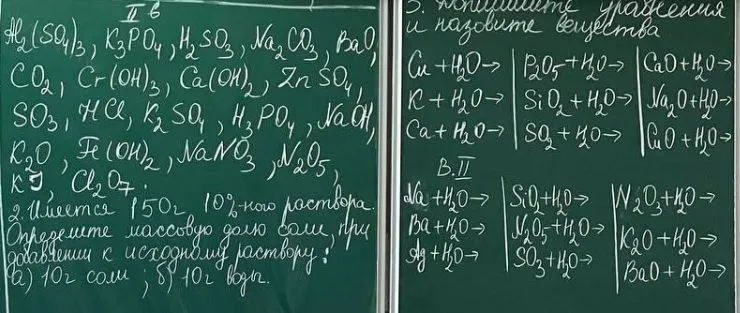 II в
Al₂(SO₄)₃, K₃PO₄, H₂SO₃, Na₂CO₃, BaO,
CO₂, Cr(OH)₃, Ca(OH)₂, ZnSO₄,
SO₃, HCl, K₂SO₄, H₃PO₄, NaOH,
K₂O, Fe(OH)₂, NaNO₃, N₂O₅,
KJ, Cl₂O₇.
2. Имеется 150г 10%-ного раствора.
Определите массовую долю соли, при
добавлении к исходному раствору:
а) 10г соли; б) 10г воды.
3. Допишите уравнения
и назовите вещества
Cu + H₂O → | P₂O₅ + H₂O → | CaO + H₂O →
K + H₂O → | SiO₂ + H₂O → | Na₂O + H₂O →
Ca + H₂O → | SO₂ + H₂O → | CuO + H₂O →
В. II
Na + H₂O → | SiO₂ + H₂O → | N₂O₃ + H₂O →
Ba + H₂O → | N₂O₅ + H₂O → | K₂O + H₂O →
Ag + H₂O → | SO₃ + H₂O → | BaO + H₂O →